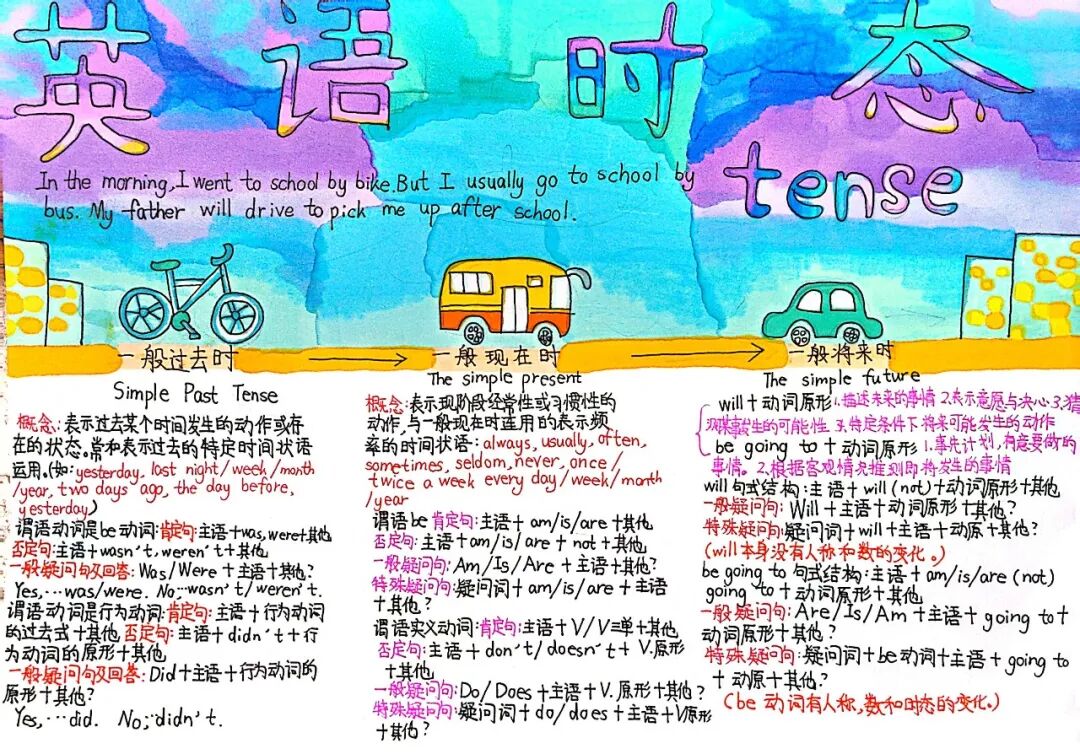 英语时态
tense
In the morning, I went to school by bike. But I usually go to school by
bus. My father will drive to pick me up after school.
一般过去时
一般现在时
一般将来时
Simple Past Tense
概念:表示过去某个时间发生的动作或存
在的状态。常和表示过去的特定时间状语
运用。(如:yesterday, last night/week/month
/year, two days ago, the day before,
yesterday)
谓语动词是be动词:肯定句:主语+was, were+其他
否定句:主语+wasn't, weren't+其他
一般疑问句及回答:Was/Were+主语+其他?
Yes,…was/were. No,…wasn't/weren't.
谓语动词是行为动词:肯定句:主语+行为动词
的过去式+其他 否定句:主语+didn't+行
为动词的原形+其他
一般疑问句及回答:Did+主语+行为动词的
原形+其他?
Yes,…did. No,…didn't.
The simple present
概念:表示现阶段经常性或习惯性的
动作,与一般现在时适用的表示频
率的时间状语:always, usually, often,
sometimes, seldom, never, once/
twice a week every day/week/month
/year
谓语be 肯定句:主语+am/is/are+其他
否定句:主语+am/is/are+not+其他
一般疑问句:Am/Is/Are+主语+其他?
特殊疑问句:疑问词+am/is/are+主语
+其他?
谓语实义动词:肯定句:主语+V/V三单+其他
否定句:主语+don't/doesn't+V.原形
+其他
一般疑问句:Do/Does+主语+V.原形+其他?
特殊疑问句:疑问词+do/does+主语+V原形
+其他?
The simple future
will+动词原形 1.描述未来的事情 2.表示意愿与决心 3.猜
测某事发生的可能性 3.特定条件下将来可能发生的动作
be going to+动词原形 1.事先计划,有意要做的
事情。2.根据客观情况推测即将发生的事情
will句式结构:主语+will(not)+动词原形+其他
一般疑问句:Will+主语+动词原形+其他?
特殊疑问句:疑问词+will+主语+动原+其他?
(will本身没有人称和数的变化。)
be going to句式结构:主语+am/is/are(not)
going to+动词原形+其他
一般疑问句:Are/Is/Am+主语+going to+
动词原形+其他?
特殊疑问句:疑问词+be动词+主语+going to
+动原+其他?
(be动词有人称,数和时态的变化。)